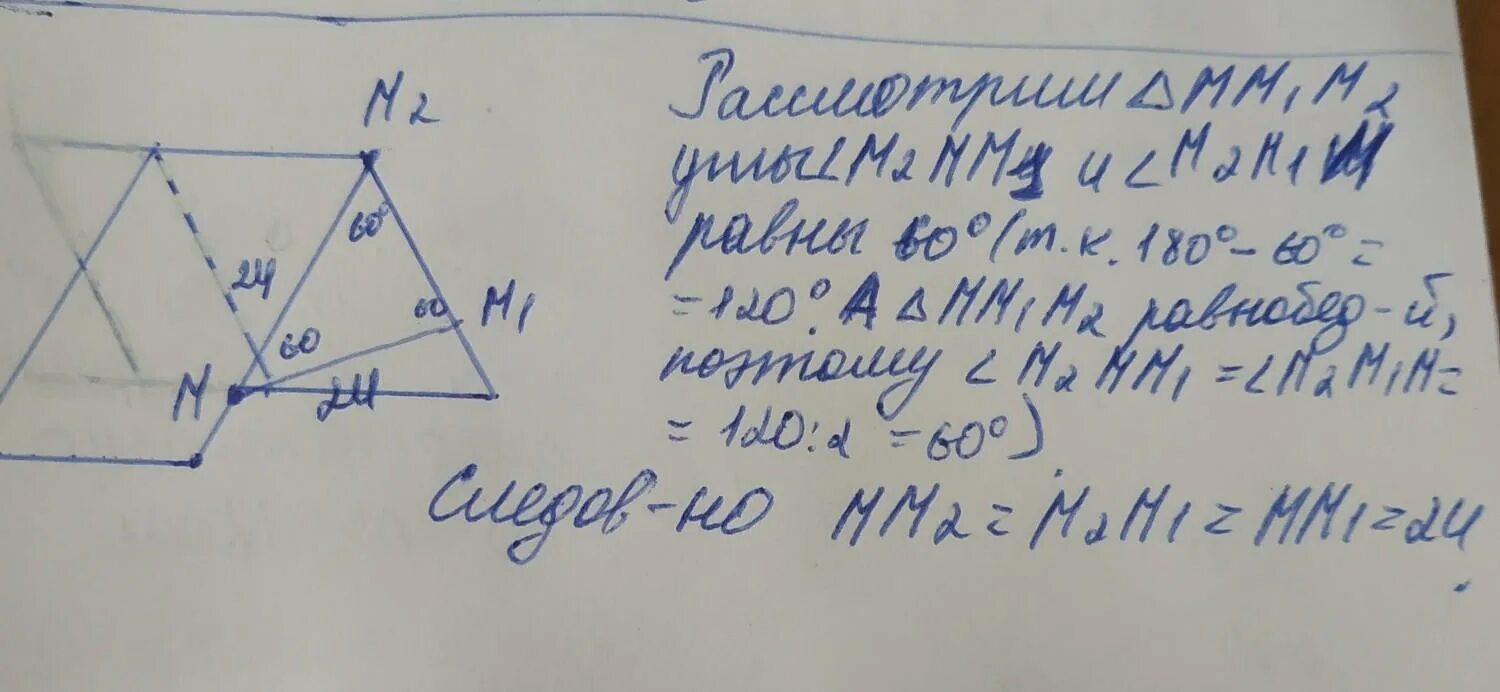 M2
60°
24
60
M1
60
M
24
Рассмотрим △MM1M2
углы ∠M2MM1 и ∠M2M1M
равны 60° (т.к. 180° - 60° =
= 120°. А △MM1M2 равнобед-й,
поэтому ∠M2MM1 = ∠M2M1M =
= 120:2 = 60°)
Следов-но MM2 = M2M1 = MM1 = 24